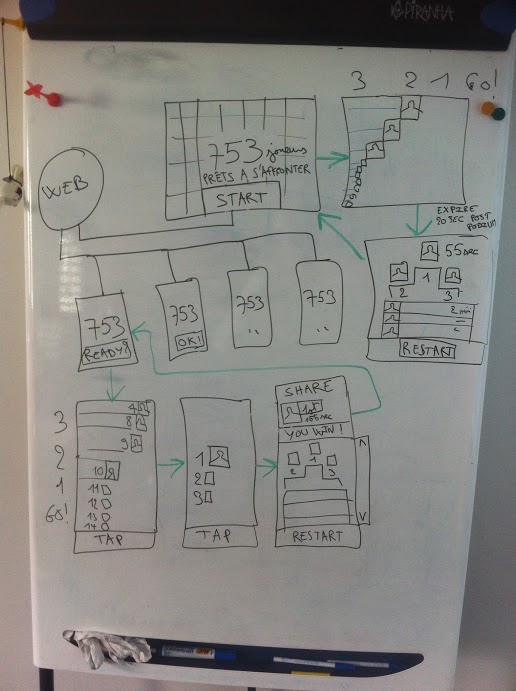 PIRANHA
3 2 1 GO!
753 joueurs
PRÊTS A S'AFFRONTER
START
WEB
EXPIRE
20 SEC POST
PODIUM
55 SEC
1
2 3
2 min
RESTART
753
READY?
753
OK!
753
..
753
..
3
2
1
GO!
4
8
9
10
11
12
13
14
TAP
1
2
3
TAP
SHARE
1st
YOU WIN!
1
2 3
RESTART